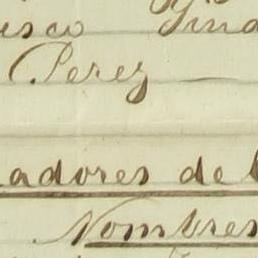 isco
Perez
adores de
Nombres